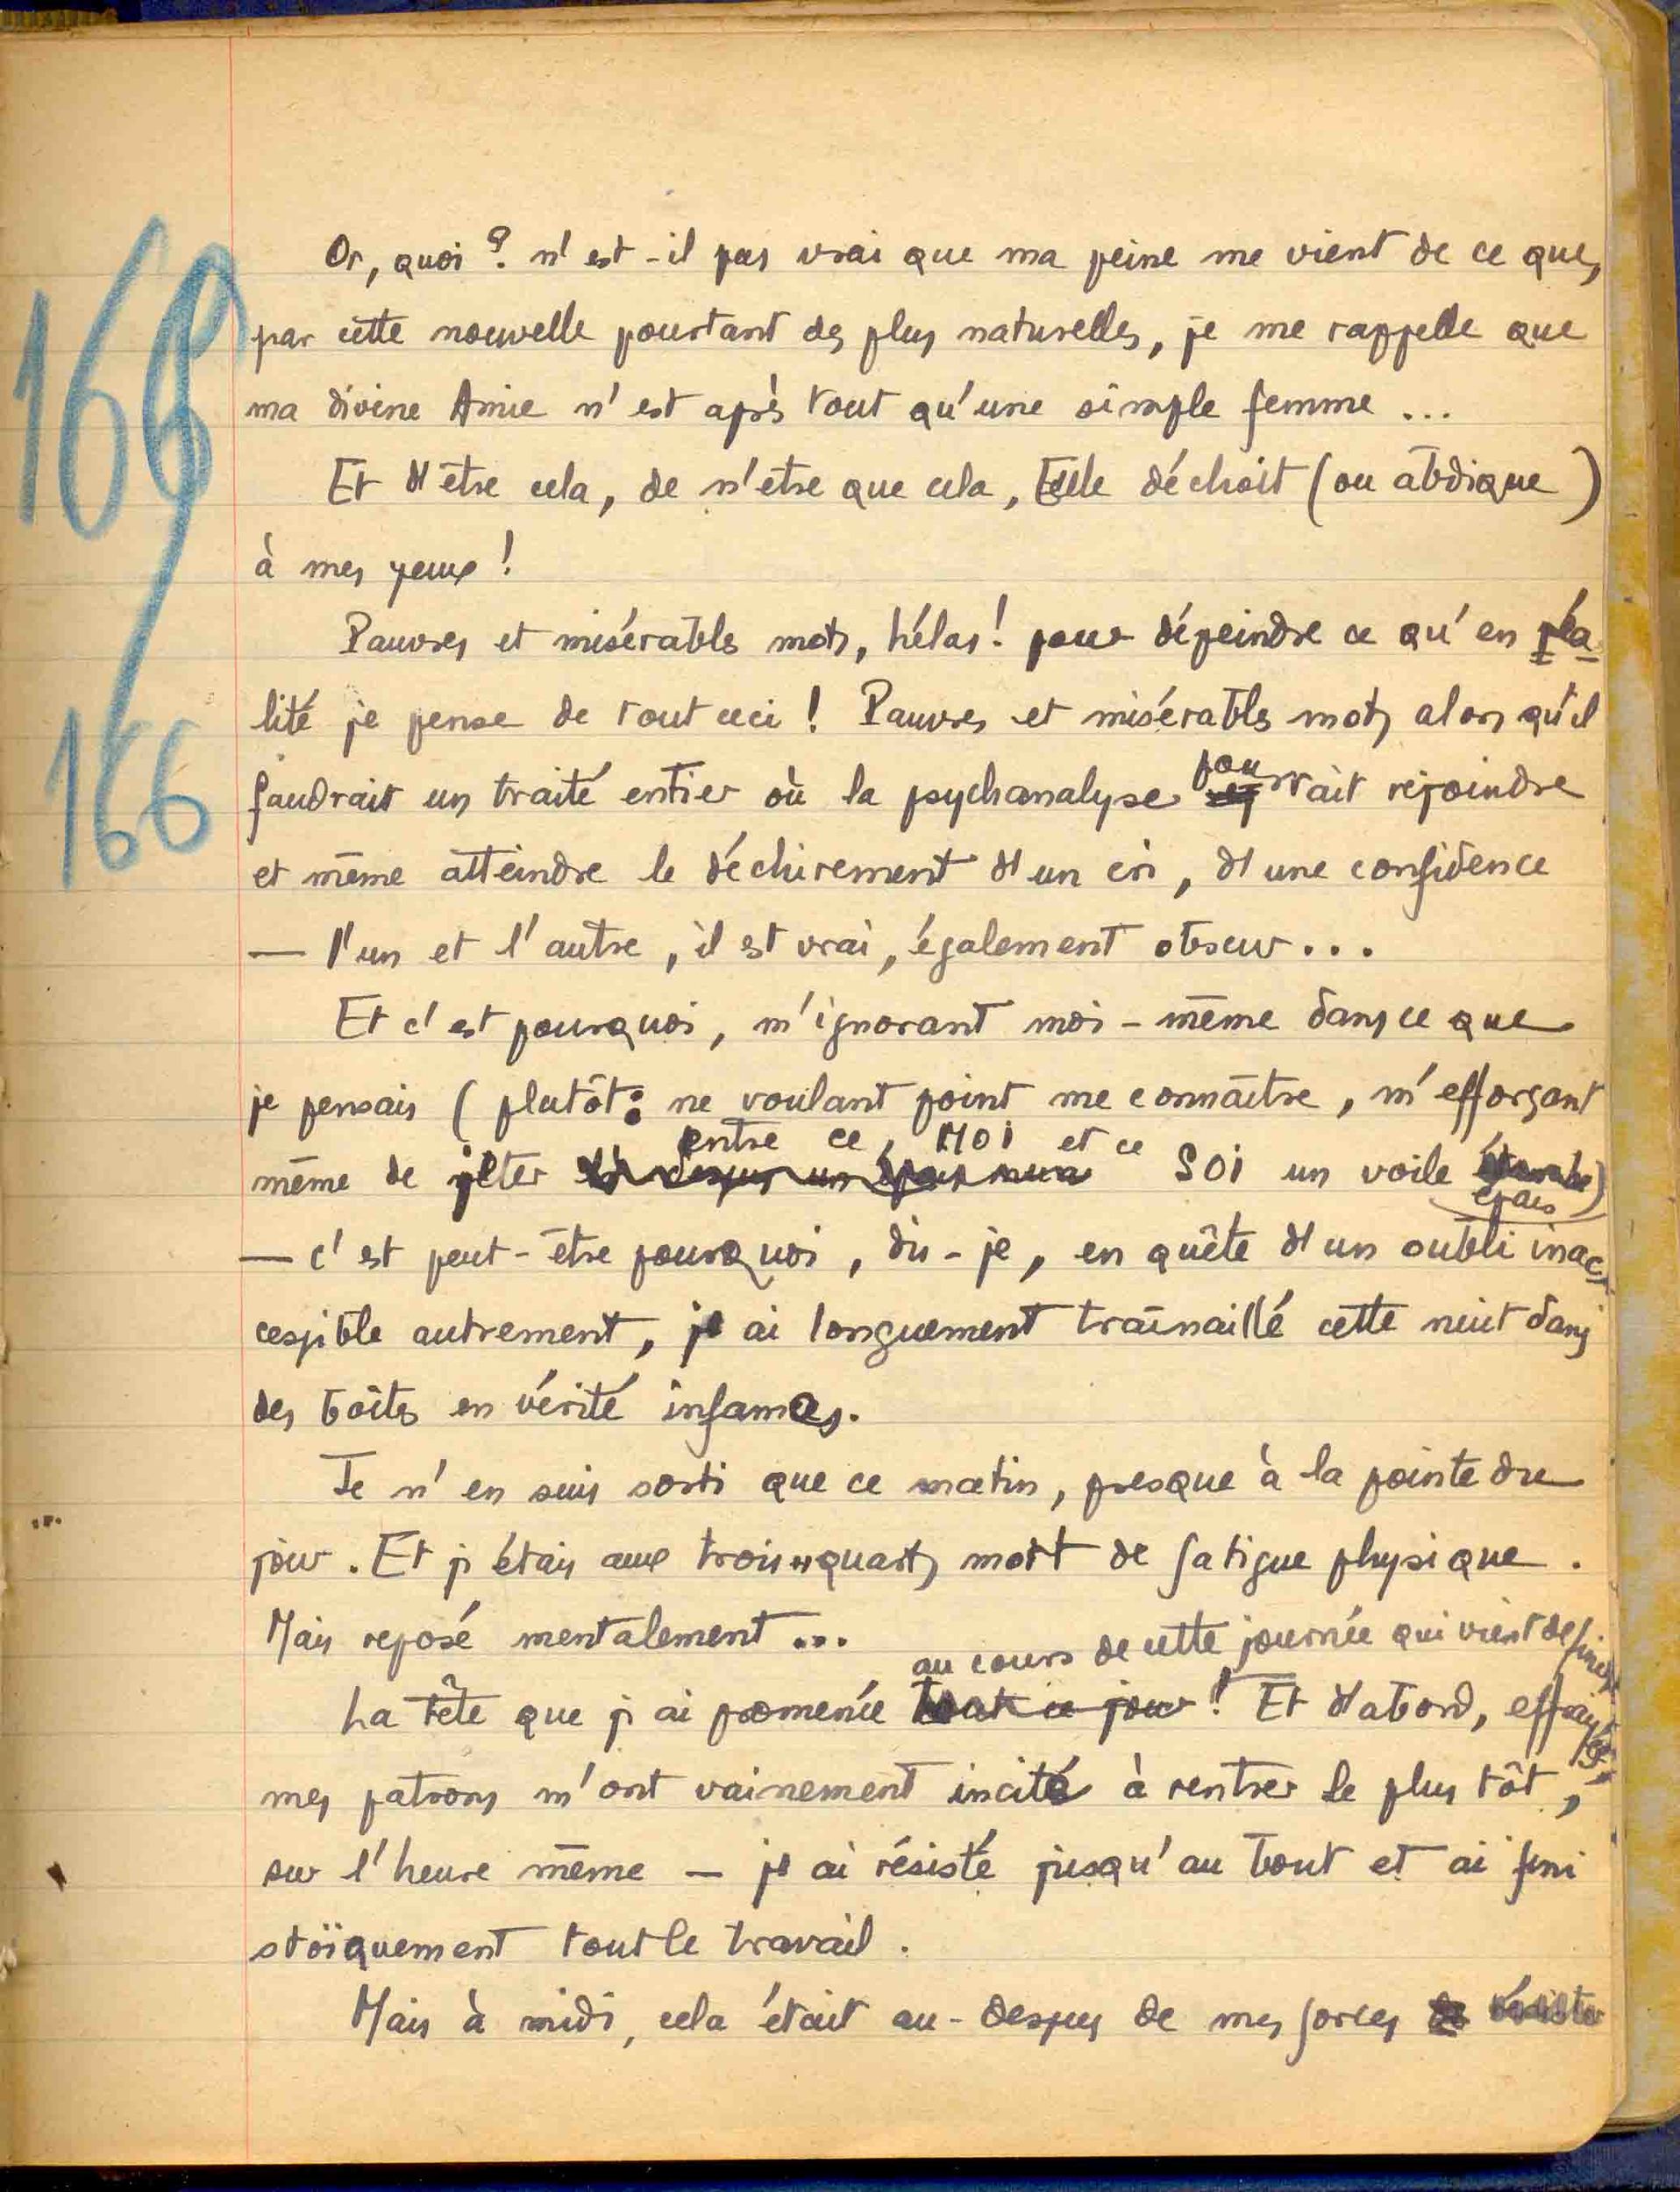 169
166
Or, quoi ? n'est-il pas vrai que ma peine me vient de ce que,
par cette nouvelle pourtant des plus naturelles, je me rappelle que
ma divine Amie n'est après tout qu'une simple femme ...
Et d'être cela, de n'être que cela, Elle déchoit (ou abdique)
à mes yeux !
Pauvres et misérables mots, hélas ! pour dépeindre ce qu'en réa-
lité je pense de tout ceci ! Pauvres et misérables mots alors qu'il
faudrait un traité entier où la psychanalyse pourrait rejoindre
et même atteindre le déchirement d'un cri, d'une confidence
— l'un et l'autre, il est vrai, également obscur...
Et c'est pourquoi, m'ignorant moi-même dans ce que
je pensais (plutôt : ne voulant point me connaître, m'efforçant
entre ce MOI et ce
même de jeter là-dessus un épais mur SOI un voile
épais)
— c'est peut-être pourquoi, dis-je, en quête d'un oubli inac-
cessible autrement, je ai longuement traînaillé cette nuit dans
des boîtes en vérité infames.
Je n'en suis sorti que ce matin, presque à la pointe du
jour. Et j'étais aux trois-quarts mort de fatigue physique.
Mais reposé mentalement ...
au cours de cette journée qui vient de finir
La tête que j'ai promenée tout ce jour ! Et d'abord, effrayés,
mes patrons m'ont vainement incité à rentrer le plus tôt,
sur l'heure même — je ai résisté jusqu'au bout et ai fini
stoïquement tout le travail.
Mais à midi, cela était au-dessus de mes forces de résister